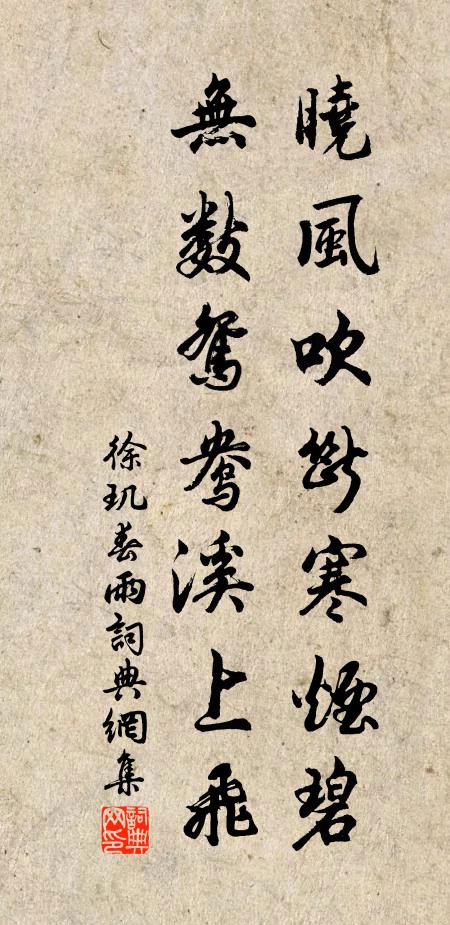 曉風吹斷寒煙碧
無數鴛鴦溪上飛
徐璣春雨詞典網集
詞典
网印